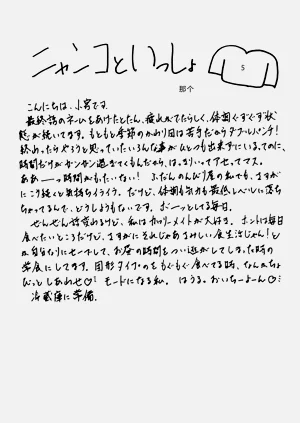 ニャンコといっしょ
5
那个
こんにちは、小宮です。
最終話のネームをあげたとたん、疲れがでたらしく、体調ぐずぐず状
態が続いてます。もともと季節のかわり目は苦手だからダブルパンチ!
終わったらやろうと思っていたいろんな事がひとつも出来ずにいるのに、
時間だけがガンガン過ぎてくもんだから、はっきりいってアセってマス。
ああーっ時間がもったいない! ふだんのんびり屋の私でも、さすが
にこう続くと気持ちイライラ。だけど、体調も気力も最低レベルに落ち
ちゃってるんで、どうしようもないです。ボーッとしてる毎日。
ぜんぜん話変わるけど、私はカロリーメイトが大好き。ホントは毎日
食べたいところだけど、さすがにそれじゃあさみしい食生活じゃん!と
自分なりにセーブして、お昼の時間をつい逃がしてしまった時の
常食にしてます。固形タイプのをもぐもぐ食べてる時、なんかちょ
びっとしあわせ♡ モードになる私。はうる。おいちーよーん♡
冷蔵庫に常備。